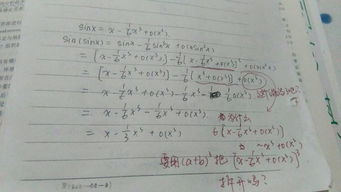 sinx = x - 1/6 x³ + o(x³).
sin(sinx) = sinx - 1/6 sin³x + o(sin³x)
= [x - 1/6 x³ + o(x³)] - 1/6 [x - 1/6 x³ + o(x³)]³ + o(sin³x)
= [x - 1/6 x³ + o(x³)] - 1/6 [x³ + o(x³)] + o(x³)
= x - 1/6 x³ + o(x³) - 1/6 x³ - 1/6 o(x³)
= x - 1/6 x³ - 1/6 x³ + o(x³)
= x - 1/3 x³ + o(x³)
为什么
6 [x - 1/6 x³ + o(x³)]³
~ x³ + o(x³)
要用(a+b)³ 把 [x - 1/6 x³ + o(x³)]³
拆开吗?